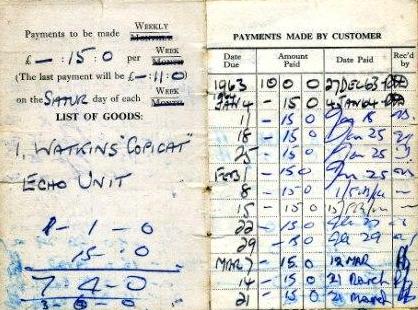 Payments to be made WEEKLY MONTHLY
£ - : 15 : 0 per WEEK MONTH
(The last payment will be £ - : 11 : 0)
on the SATUR day of each WEEK MONTH
LIST OF GOODS:
1. WATKINS "COPICAT"
ECHO UNIT
8 - 1 - 0
15 - 0
7 4 - 0
PAYMENTS MADE BY CUSTOMER
Date Due Amount Paid Date Paid Rec'd by
1963 10 0 0 27 DEC 63
JAN 4 - 15 0 4 JAN 64
11 - 15 0
18 - 15 0 Jan 25
25 - 15 0
FEB 1 - 15 0
8 - 15 0
15 - 15 0
22 - 15 0
29 - 15 0 29
MAR 7 - 15 0 12 MAR
14 - 15 0 21 March
21 - 15 0 21 March